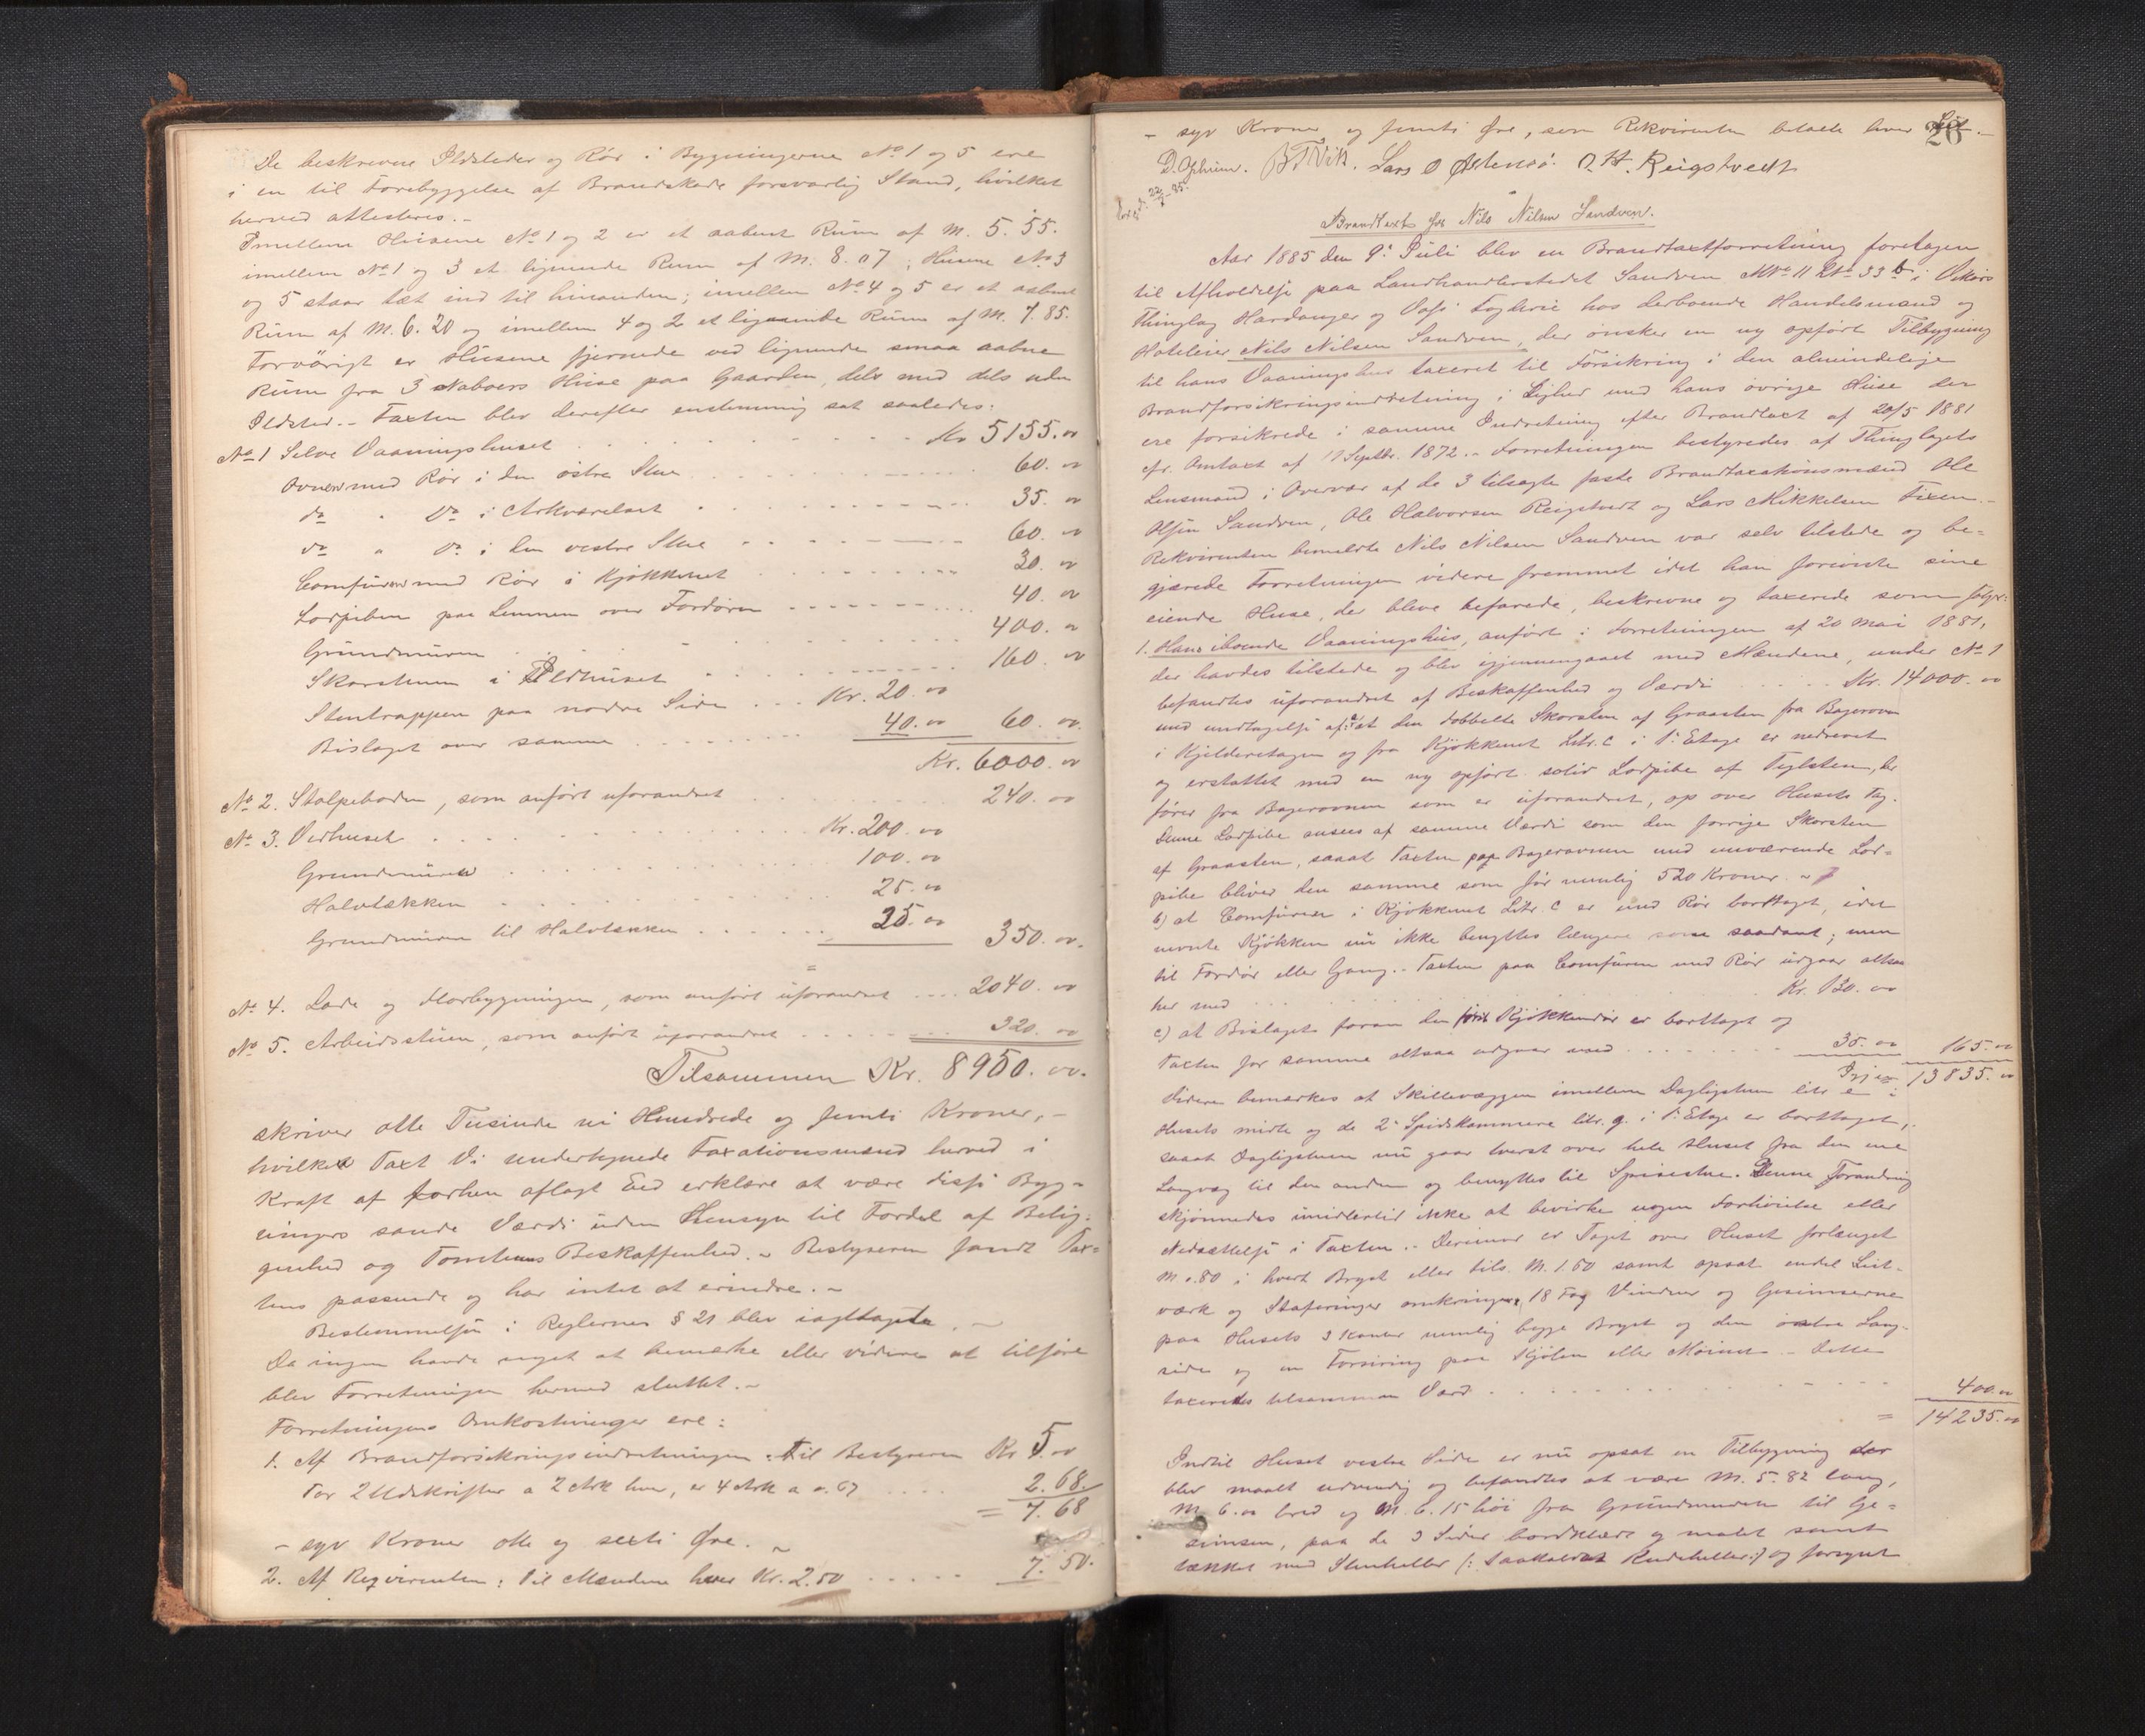 De beskrevne Ildsteder og Rør i Bygningerne No 1 og 5 ere
i en til Forebyggelse af Brandskade forsvarlig Stand, hvilket
herved attesteres.-
Imellem Husene No 1 og 2 er et aabent Rum af M. 5.55.
imellem No 1 og 3 et lignende Rum af M. 8.07; Husene No 3
og 5 staar tæt ind til hinanden; imellem No 4 og 5 er et aabent
Rum af M. 6.20 og imellem 4 og 2 et lignende Rum af M. 7.85.
Forvörigt er Husene fjernede ved lignende smaa aabne
Rum fra 3 Naboers Huse paa Gaarden, dels med dels uden
Ildsted.- Taxten blev derefter enstemmig sat saaledes:
No 1 Selve Vaaningshuset . . . Kr 5155.00
Ovnen med Rör i den östre Stue . . . 60.00
do " Do i Arkværelset . . . 35.00
do " Do i den vestre Stue . . . 60.00
Comfuren med Rör i Kjökkenet . . . 30.00
Lodpiben paa Lemmen over Fordören . . . 40.00
Grundmuren . . . 400.00
Skorstenen i Ildhuset . . . 160.00
Stentrappen paa nordre Side . . . Kr. 20.00
Bislaget over samme . . . 40.00 60.00
Kr. 6000.00
No 2. Stolpeboden, som anfört uforandret . . . 240.00
No 3. Vedhuset . . . Kr. 200.00
Grundmuren . . . 100.00
Halvtækken . . . 25.00
Grundmuren til Halvtækken . . . 25.00 350.00.
No 4. Lade og Florbygningen, som anfört uforandret . . . 2040.00
No 5. Arbeidsstuen, som anfört uforandret . . . 320.00
Tilsammen Kr. 8950.00.
skriver otte Tusinde ni Hundrede og femti Kroner,-
hvilken Taxt Vi undertegnede Taxationsmænd herved i
Kraft af forhen aflagt Eed erklære at være disse Byg-
ningers sande Værdi uden Hensyn til Fordel af Belig-
genhed og Tomtens Beskaffenhed.- Bestyreren fandt Tax-
tens passende og har intet at erindre.-
Bestemmelsen i Reglernes § 21 blev iagttaget.-
Da ingen havde noget at bemærke eller videre at tilföre
blev Forretningen hermed sluttet.-
Forretningens Omkostninger ere:
1. Af Brandforsikringsindretningen: Til Bestyreren Kr 5.00
For 2 Udskrifter a 2 Ark hver, er 4 Ark a 0.67 . . . 2.68.
= 7.68
- syv Kroner otte og sexti Øre.-
2. Af Reqvirenten: Til Mændene hver Kr. 2.50 . . . 7.50.
- syv Kroner og femti Øre, som Rekvirenten betalte hver
26
D. Opheim. B T Vik. Lars O Østensö. O. H. Reigstvedt
22/7-85.
Brandtaxt for Nils Nilsen Sandven.
Aar 1885 den 9. Juli blev en Brandtaxtforretning foretagen
til Afholdelse paa Landhandlerstedet Sandven MNo 11 LNo 33 b i Vikörs
Thinglag Hardanger og Voss Fogderie hos derboende Handelsmand og
Hoteleier Nils Nilsen Sandven, der önsker en ny opfört Tilbygning
til hans Vaaningshus taxeret til Forsikring i den almindelige
Brandforsikringsindretning i Lighed med hans övrige Huse der
ere forsikrede i samme Indretning efter Brandtaxt af 20/5 1881
cfr. Omtaxt af 17 Septbr. 1872.- Forretningen bestyredes af Thinglagets
Lensmand i Overvær af de 3 tilsagte faste Brandtaxationsmænd Ole
Olsen Sandven, Ole Halvorsen Reigstvedt og Lars Mikkelsen Tixen.-
Rekvirenten bemeldte Nils Nilsen Sandven var selv tilstede og be-
gjærede Forretningen videre fremmet idet han foreviste sine
eiende Huse, der bleve befarede, beskrevne og taxerede som fölger:
1. Hans iboende Vaaningshus, anfört i Forretningen af 20 Mai 1881,
der havdes tilstede og blev igjennemgaaet med Mændene, under No 1
befandtes uforandret af Beskaffenhed og Værdi . . . Kr. 14000.00
med undtagelse af: a/ at den dobbelte Skorsten af Graasten fra Bagerovn
i Kjelderetagen og fra Kjökkenet Litr. c i 1. Etage er nedrevet
og erstattet med en ny opfört solid Lodpibe af Teglsten, der
förer fra Bagerovnen som er uforandret, op over Husets Tag.
Denne Lodpibe ansees af samme Værdi som den forrige Skorsten
af Graasten, saaat Taxten paa Bagerovnen med nuværende Lod-
pibe bliver den samme som för nemlig 520 Kroner.-
b) at Comfuren i Kjökkenet Litr. c er med Rör borttaget, idet
nævnte Kjökken nu ikke benyttes længere som saadant; men
til Fordör eller Gang.- Taxten paa Comfuren med Rör udgaar altsaa
her med . . . Kr. 130.00
c) at Bislaget foran den förste Kjökkendör er borttagt og
Taxten for samme altsaa udgaar med . . . 35.00 165.00
Igjen 13835.00
Videre bemærkes at Skillevæggen imellem Dagligstuen litr e i
Husets midte og de 2 Spidskammere litr. g. i 1. Etage er borttaget,
saaat Dagligstuen nu gaar tverst over hele Huset fra den ene
Langvæg til den anden og benyttes til Spisestue. Denne Forandring
skjönnedes imidlertid ikke at bevirke nogen Forhöielse eller
Nedsættelse i Taxten.- Derimod er Taget over Huset forlænget
M 0.80 i hvert Bryst eller tils. M. 1.60 samt opsat endel List-
værk og Staferinger omkring 18 Fag Vinduer og Gesimserne
paa Husets 3 Kanter nemlig begge Bryst og den östre Lang-
side og en Forsiring paa Kjölen eller Mönnet.- Dette
taxeredes tilsammen Værd . . . 400.00
= 14235.00
Indtil Huset vestre Side er nu opsat en Tilbygning der
blev maalt udvendig og befandtes at være M. 5.82 lang,
M. 6.00 bred og M. 6.15 höi fra Grundmuren til Ge-
simsen, paa de 3 Sider bordklædt og malet samt
tækket med Stenheller (: saakaldet Rudeheller:) og forsynet